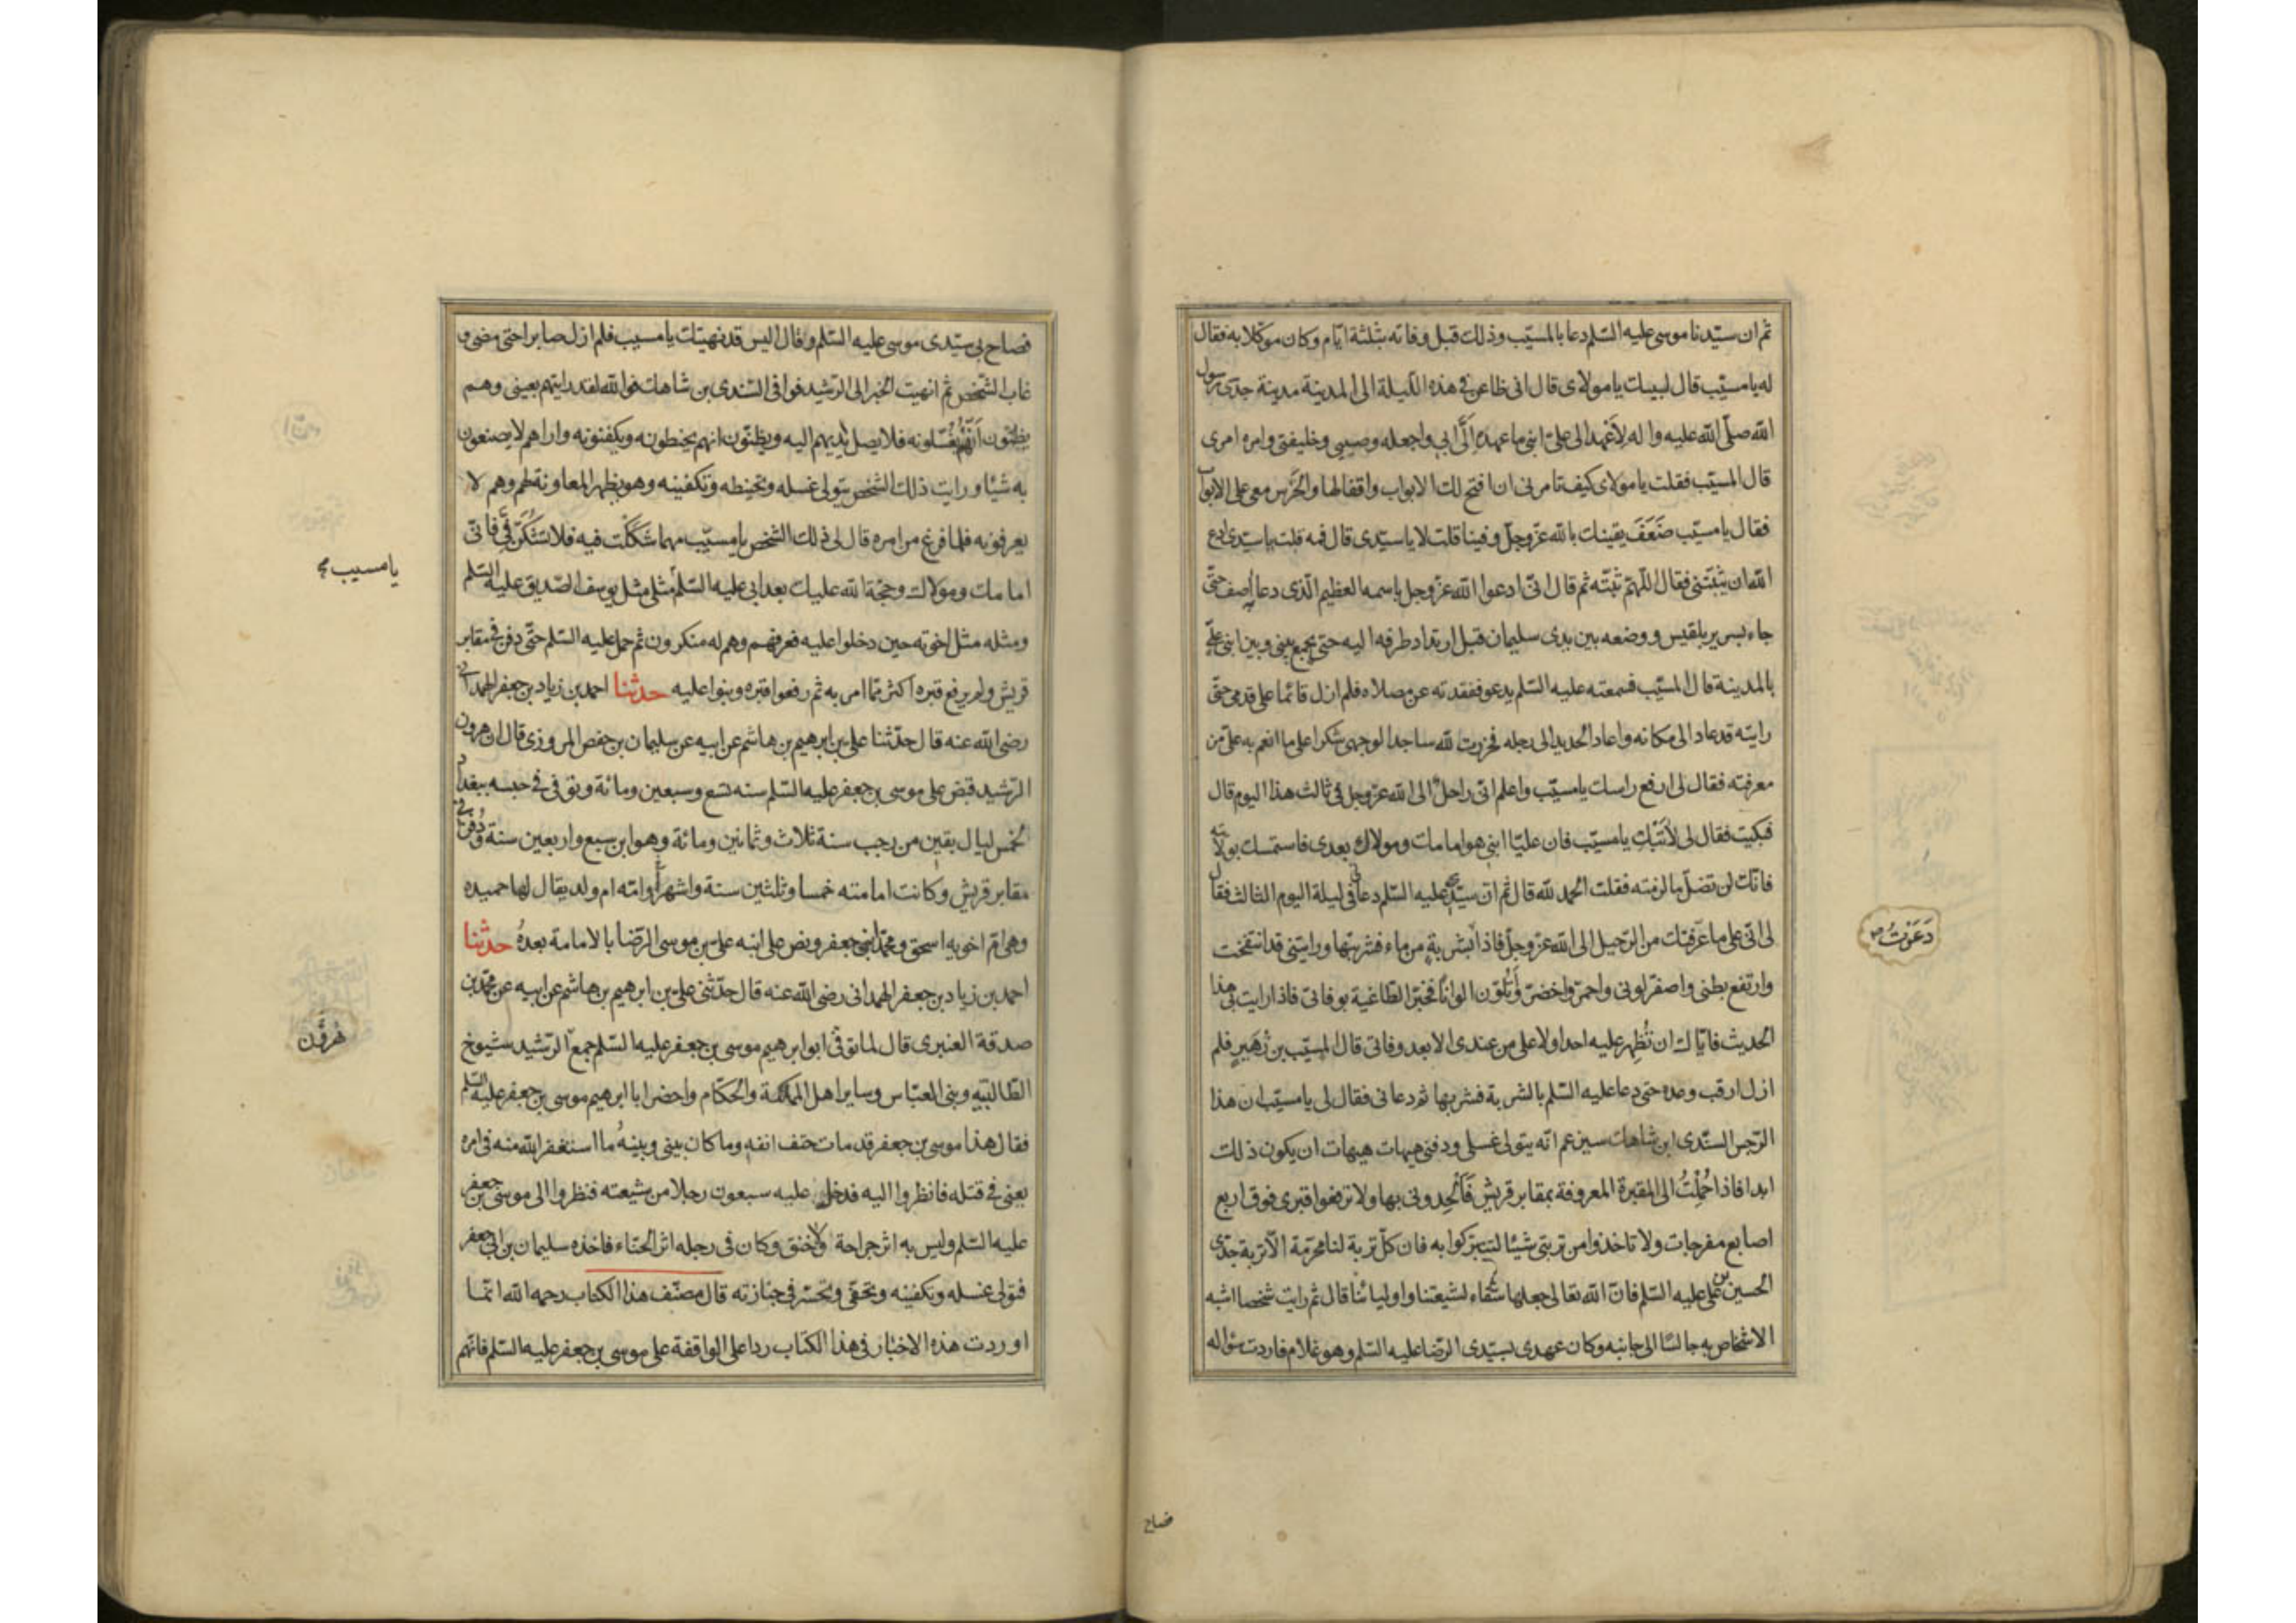 ثم ان سيّدنا موسى عليه السّلم دعا بالمسيّب وذلك قبل وفاته بثلثة ايّام وكان موكّلا به فقال
له يا مسيّب قال لبيك يا مولاى قال انى ظاعن فى هذه اللّيلة الى المدينة مدينة جدّى رسول
الله صلّى الله عليه واله لِاَعْهَد الى علىّ ابنى ما عهده اِلَىَّ ابى واجعله وصيى وخليفتى وامره امرى
قال المسيّب فقلت يا مولاى كيف تامرنى ان افتح لك الابواب واقفالها والحَرَس معى على الابواب
فقال يا مسيّب ضَعُفَ يقينك بالله عزّ وجلّ وفينا قلت لا يا سيّدى قال فمه قلت يا سيّدى ادع
الله ان يثبّتنى فقال اللّهمّ ثبّته ثم قال انّى ادعوا الله عزّ وجل باسمه العظيم الّذى دعا اصف حتّى
جاء بسرير بلقيس ووضعه بين يدى سليمان قبل ارتداد طرفه اليه حتى يجمع بينى وبين ابنى علىّ
بالمدينة قال المسيّب فسمعته عليه السّلم يدعو ففقدته عن مصلاه فلم ازل قائما على قدمى حتّى
رايته قد عاد الى مكانه واعاد الحديد الى رجله فخررت لله ساجدا لوجهى شكرا على ما انعم به علىّ من
معرفته فقال لى ارفع راسك يا مسيّب واعلم انّى راحلٌ الى الله عزّ وجل فى ثالث هذا اليوم قال
فبكيت فقال لى لاتَبْكِ يا مسيّب فان عليّا ابنى هو امامك ومولاك بعدى فاستمسك بولايته
فانّك لن تضلّ ما لزمته فقلت الحمد لله قال ثم انّ سيّدى عليه السّلم دعانى فى ليلة اليوم الثالث فقال
لى انّى على ما عرّفتك من الرّحيل الى الله عزّ وجلّ فاذا بشربةٍ من ماء فشربتها ورايتنى قد انتفخت
وارتفع بطنى واصفرّ لونى واحمرّ واخضرّ وَتَلَوّن الوانًا فخبّر الطّاغية بوفاتى فاذا رايت بى هذا
الحديث فايّاك ان تُظْهِر عليه احدا ولا على من عندى الا بعد وفاتى قال المسيّب بن زُهَيرٍ فلم
ازل ارقب وعده حتى دعا عليه السّلم بالشربة فشربها ثم دعانى فقال لى يا مسيّب ان هذا
الرّجس السنّدى ابن شاهك سيزعم انّه يتولى غسلى ودفنى هيهات هيهات ان يكون ذلك
ابدا فاذا حُمِلْتُ الى المقبرة المعروفة بمقابر قريش فَاَلْحِدونى بها ولا ترفعوا قبرى فوق اربع
اصابع مفرجات ولا تاخذوا من تربتى شيئا لتتبرّكوا به فان كلّ تربة لنا محرّمة الّا تربة جدّى
الحسين بن على عليه السّلم فانّ الله تعالى جعلها شفاء لشيعتنا واوليائنا قال ثم رايت شخصا اشبه
الاشخاص به جالسًا الى جانبه وكان عهدى بسيّدى الرّضا عليه السّلم وهو غلام فاردت سؤاله
دَعَوْتُ
فصاح
فصاح بى سيّدى موسى عليه السّلم وقال اليس قد نهيتك يا مسيب فلم ازل صابرا حتى مضى و
غاب الشّخص ثم انهيت الخبر الى الرّشيد فوافى السّندى بن شاهك فوالله لقد رايتهم بعينى وهم
يظنّون اَنَّهُمْ يُغَسّلونه فلا يصل ايديهم اليه ويظنّون انهم يحنطونه ويكفنونه واراهم لا يصنعون
به شيئا ورايت ذلك الشخص يتولى غسله وتحنيطه وتكفينه وهو يظهر المعاونة لهم وهم لا
يعرفونه فلما فرغ من امره قال لى ذلك الشخص يا مسيّب مهما شَكَكْت فيه فلا تَشُكَّنَّ فِىَّ فانّى
امامك ومولاك وحجّة الله عليك بعد ابى عليه السّلم مثلى مثل يوسف الصّديق عليه السّلم
ومثله مثل اخوته حين دخلوا عليه فعرفهم وهم له منكرون ثم حمل عليه السّلم حتّى دفن فى مقابر
قريش ولم يرفع قبره اكثر ممّا امر به ثم رفعوا قبره وبنوا عليه حدّثنا احمد بن زياد بن جعفر الهمدانى
رضى الله عنه قال حدّثنا على بن ابرهيم بن هاشم عن ابيه عن سليمان بن حفص المروزى قال ان هرون
الرّشيد قبض على موسى بن جعفر عليه السّلم سنه تسع وسبعين ومائة وتوفى فى حبسه ببغداد
لخمس ليال بقين من رجب سنة ثلاث وثمانين ومائة وهو ابن سبع واربعين سنة ودُفن فى
مقابر قريش وكانت امامته خمسا وثلثين سنة واشهراً وامّه ام ولد يقال لها حميده
وهى امّ اخويه اسحق ومحمّد ابنى جعفر ونص على ابنه على بن موسى الرّضا بالامامة بعدهُ حدّثنا
احمد بن زياد بن جعفر الهمدانى رضى الله عنه قال حدّثنى على بن ابرهيم بن هاشم عن ابيه عن محمّد بن
صدقة العنبرى قال لما توفّى ابو ابرهيم موسى بن جعفر عليه السّلم جمع الرّشيد شيوخ
الطّالبيّه وبنى العبّاس وساير اهل المملكة والحكّام واحضر ابا ابرهيم موسى بن جعفر عليه السّلم
فقال هذا موسى بن جعفر قد مات حتف انفه وما كان بينى وبينهُ ما استغفر الله منه فى امره
يعنى فى قتله فانظروا اليه فدخل عليه سبعون رجلا من شيعته فنظروا الى موسى بن جعفر
عليه السّلم وليس به اثر جراحة ولا خنق وكان فى رجله اثر الحنّاء فاخذه سليمان بن ابى جعفر
فتولى غسله وتكفينه وتحفّى وتحسّر فى جنازته قال مصنّف هذا الكتاب رحمه الله انّما
اوردت هذه الاخبار فى هذا الكتاب ردا على الواقفة على موسى بن جعفر عليه السّلم فانّهم
يا مسيب
هرون